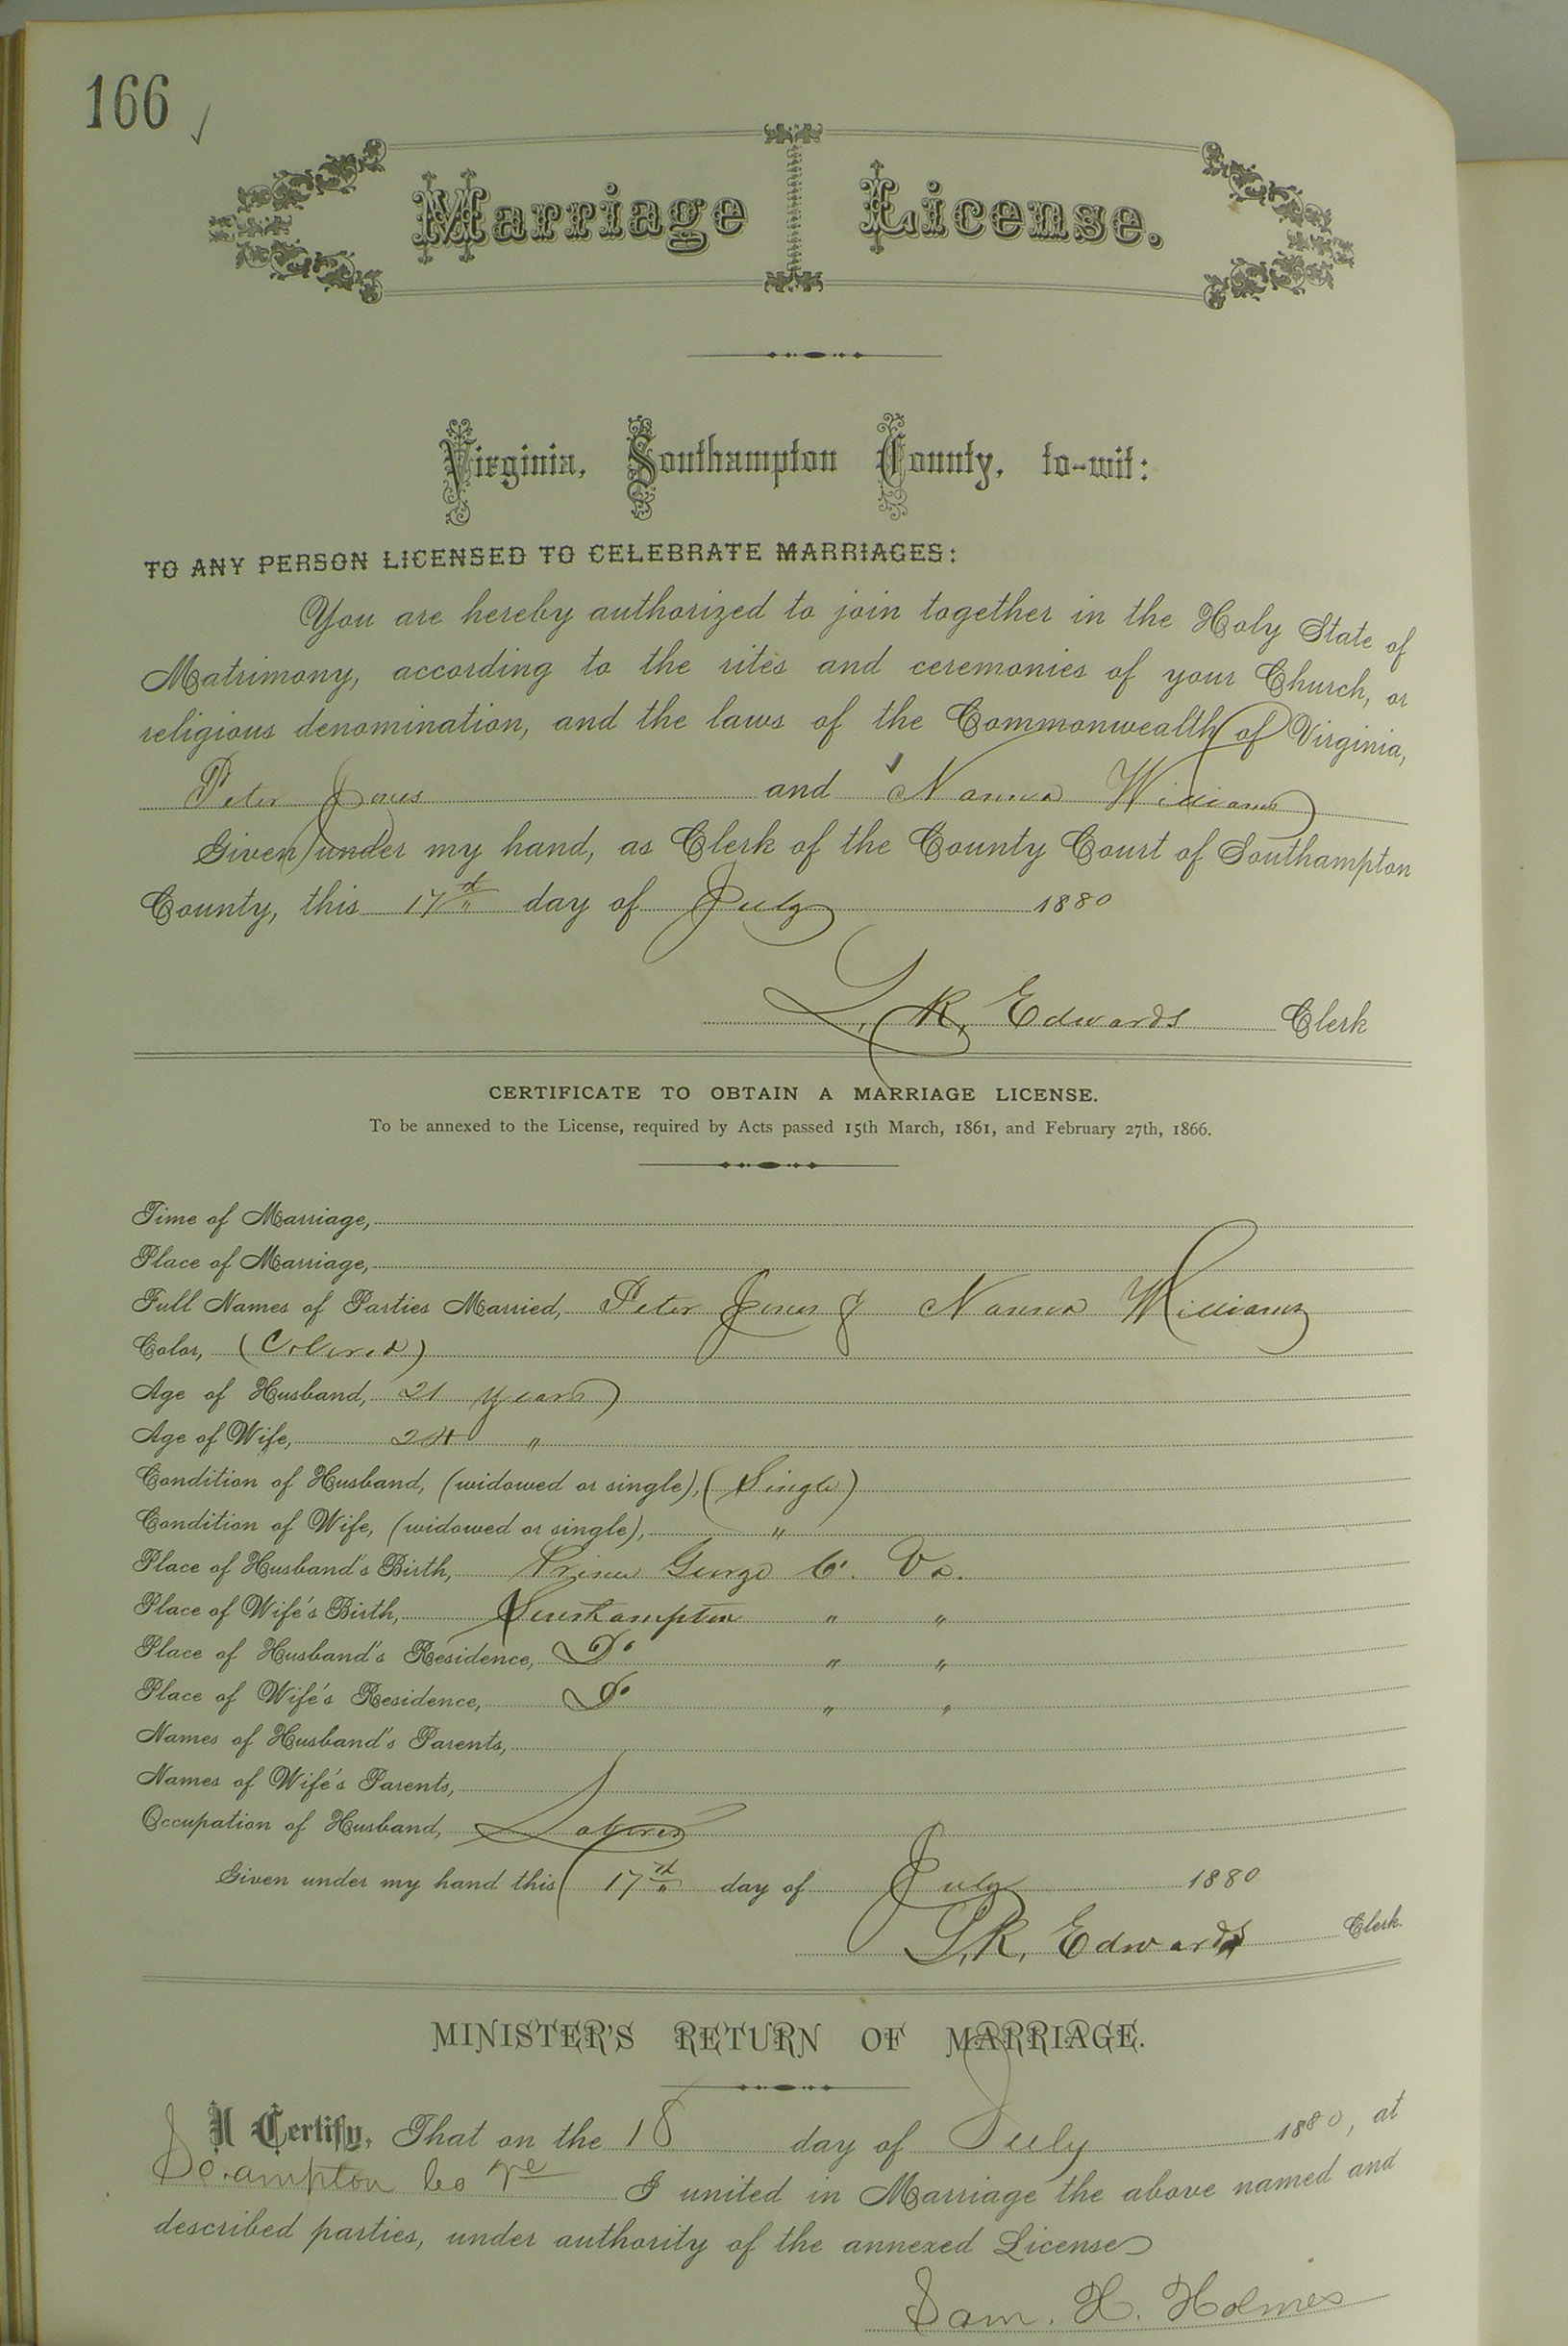 166 ✓
Marriage License.
Virginia, Southampton County, to-wit:
TO ANY PERSON LICENSED TO CELEBRATE MARRIAGES:
You are hereby authorized to join together in the Holy State of
Matrimony, according to the rites and ceremonies of your Church, or
religious denomination, and the laws of the Commonwealth of Virginia,
Peter Jones and ✓ Williams
Given under my hand, as Clerk of the County Court of Southampton
County, this 17th day of July 1880
L. R. Edwards Clerk
CERTIFICATE TO OBTAIN A MARRIAGE LICENSE.
To be annexed to the License, required by Acts passed 15th March, 1861, and February 27th, 1866.
Time of Marriage,
Place of Marriage,
Full Names of Parties Married, Peter Jones & Williams
Color, (Colored)
Age of Husband, 21 years
Age of Wife, 24 "
Condition of Husband, (widowed or single), (Single)
Condition of Wife, (widowed or single), "
Place of Husband's Birth, Prince George Co. Va.
Place of Wife's Birth, Southampton " "
Place of Husband's Residence, Do " "
Place of Wife's Residence, Do " "
Names of Husband's Parents,
Names of Wife's Parents,
Occupation of Husband, Laborer
Given under my hand this 17th day of July 1880
L. R. Edwards Clerk.
MINISTER'S RETURN OF MARRIAGE.
I Certify, That on the 18 day of July 1880, at
Co I united in Marriage the above named and
described parties, under authority of the annexed License
Sam. H. Holmes